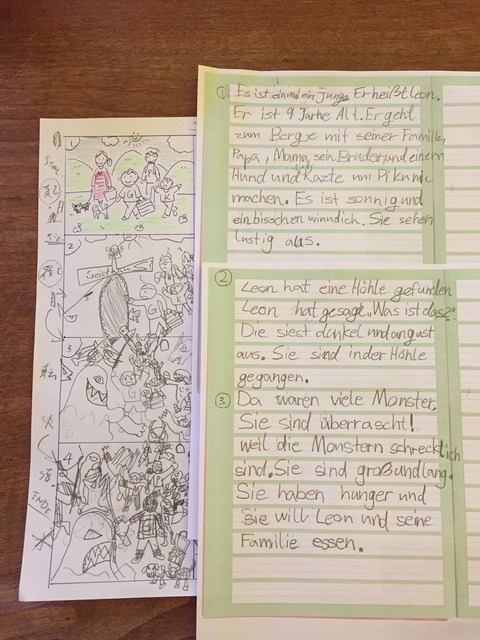 ① Es ist einmal ein Junge Er heißt Leon.
Er ist 9 Jarhe Alt. Er gehl
zum Bergue mit seiner Familie,
Papa, Mama, sein Bruder und einem
Hund und Kazte um Pikunic
machen. Es ist sonnig und
ein bisschen winndich. Sie sehen
lustig aus.
② Leon hat eine Höhle gefunden
Leon hat gesagt „Was ist dass?"
Die siest dunkel und angust
aus. Sie sind in der Höhle
gegangen.
③ Da waren viele Monster.
Sie sind überrascht!
weil die Monstern schrecklich
sind. Sie sind groß und lang.
Sie haben hunger und
Sie will Leon und seine
Familie essen.
1
2
Geist
3
4
転